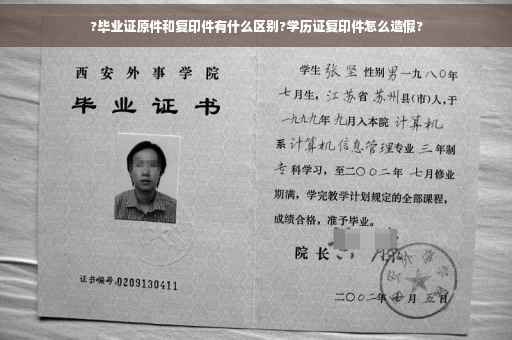 ?毕业证原件和复印件有什么区别?学历证复印件怎么造假?
西安外事学院
毕业证书
证书编号:0209130411
学生 张坚 性别 男 一九八〇年
七月生, 江苏省 苏州县(市)人,于
一九九九年 九月入本院 计算机
系 计算机信息管理专业 三 年制
专 科学习, 至二〇〇二年 七月修业
期满, 学完教学计划规定的全部课程,
成绩合格, 准予毕业。
院长
二〇〇二年 七 月 五 日